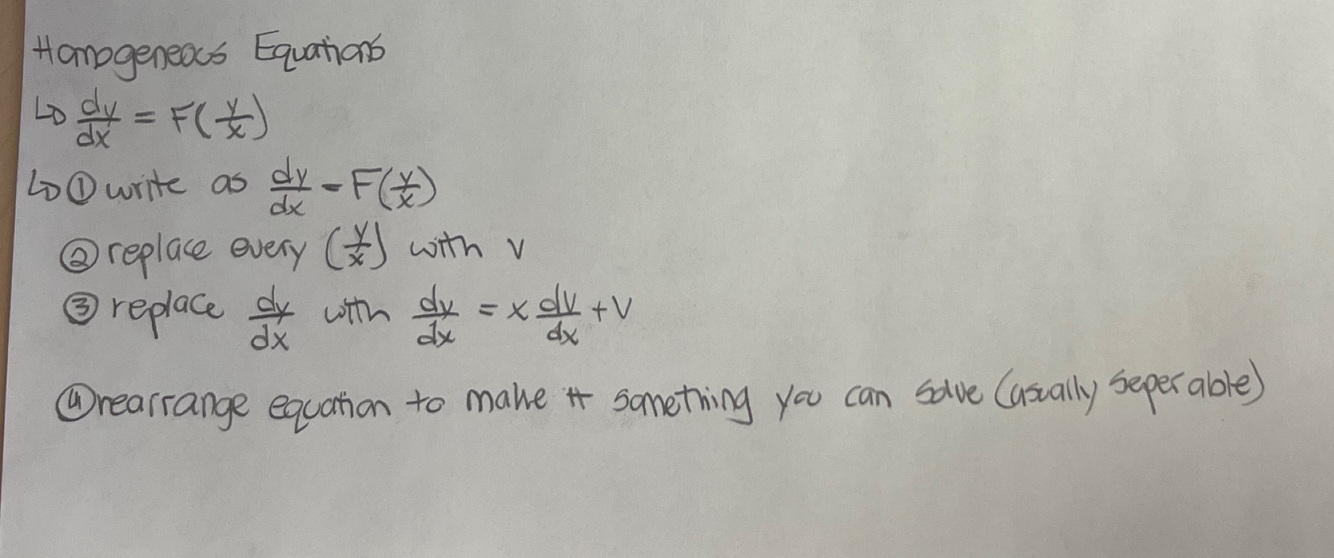 Homogeneous Equations
↳ dy/dx = F(y/x)
↳ ① write as dy/dx = F(y/x)
② replace every (y/x) with v
③ replace dy/dx with dy/dx = x dv/dx + v
④ rearrange equation to make it something you can solve (usually seperable)